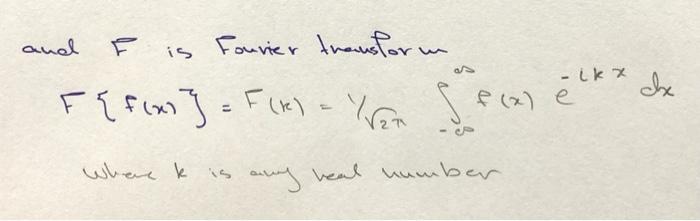 and F is Fourier transform
F{f(x)} = F(k) = 1/√2π ∫_{-∞}^{∞} f(x) e^{-ikx} dx
where k is any real number